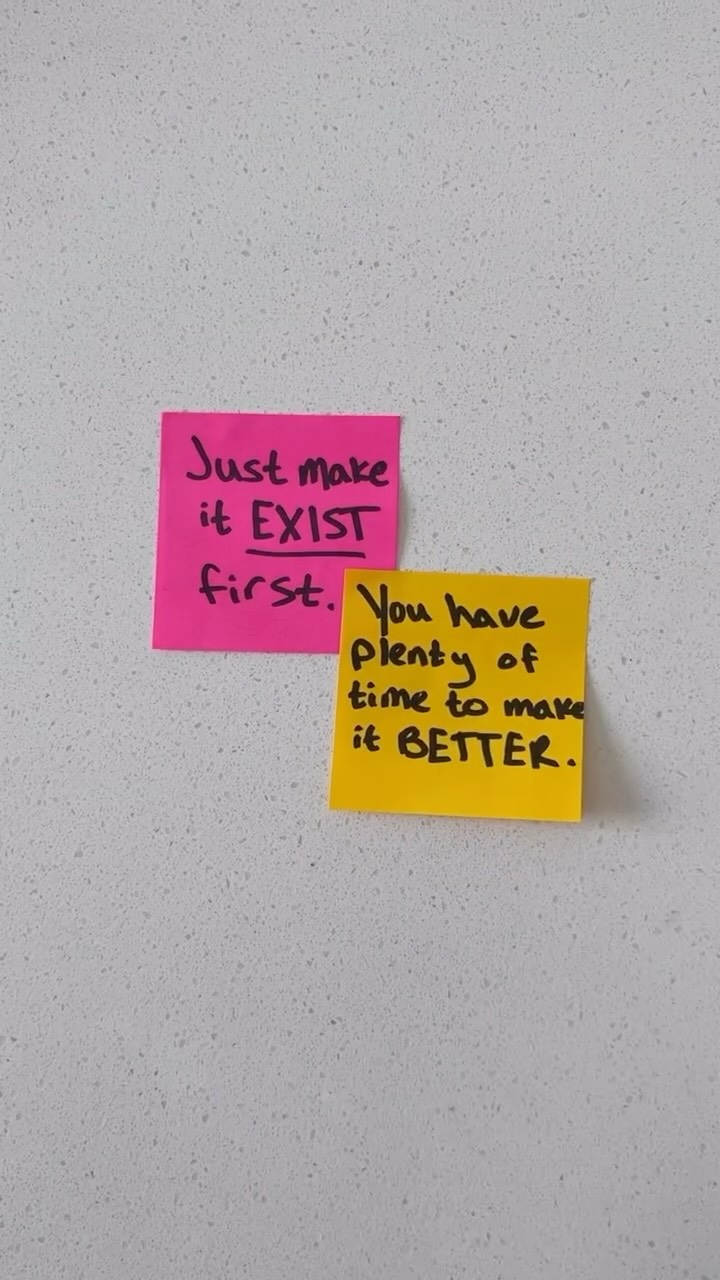 Just make
it EXIST
first.
You have
plenty of
time to make
it BETTER.